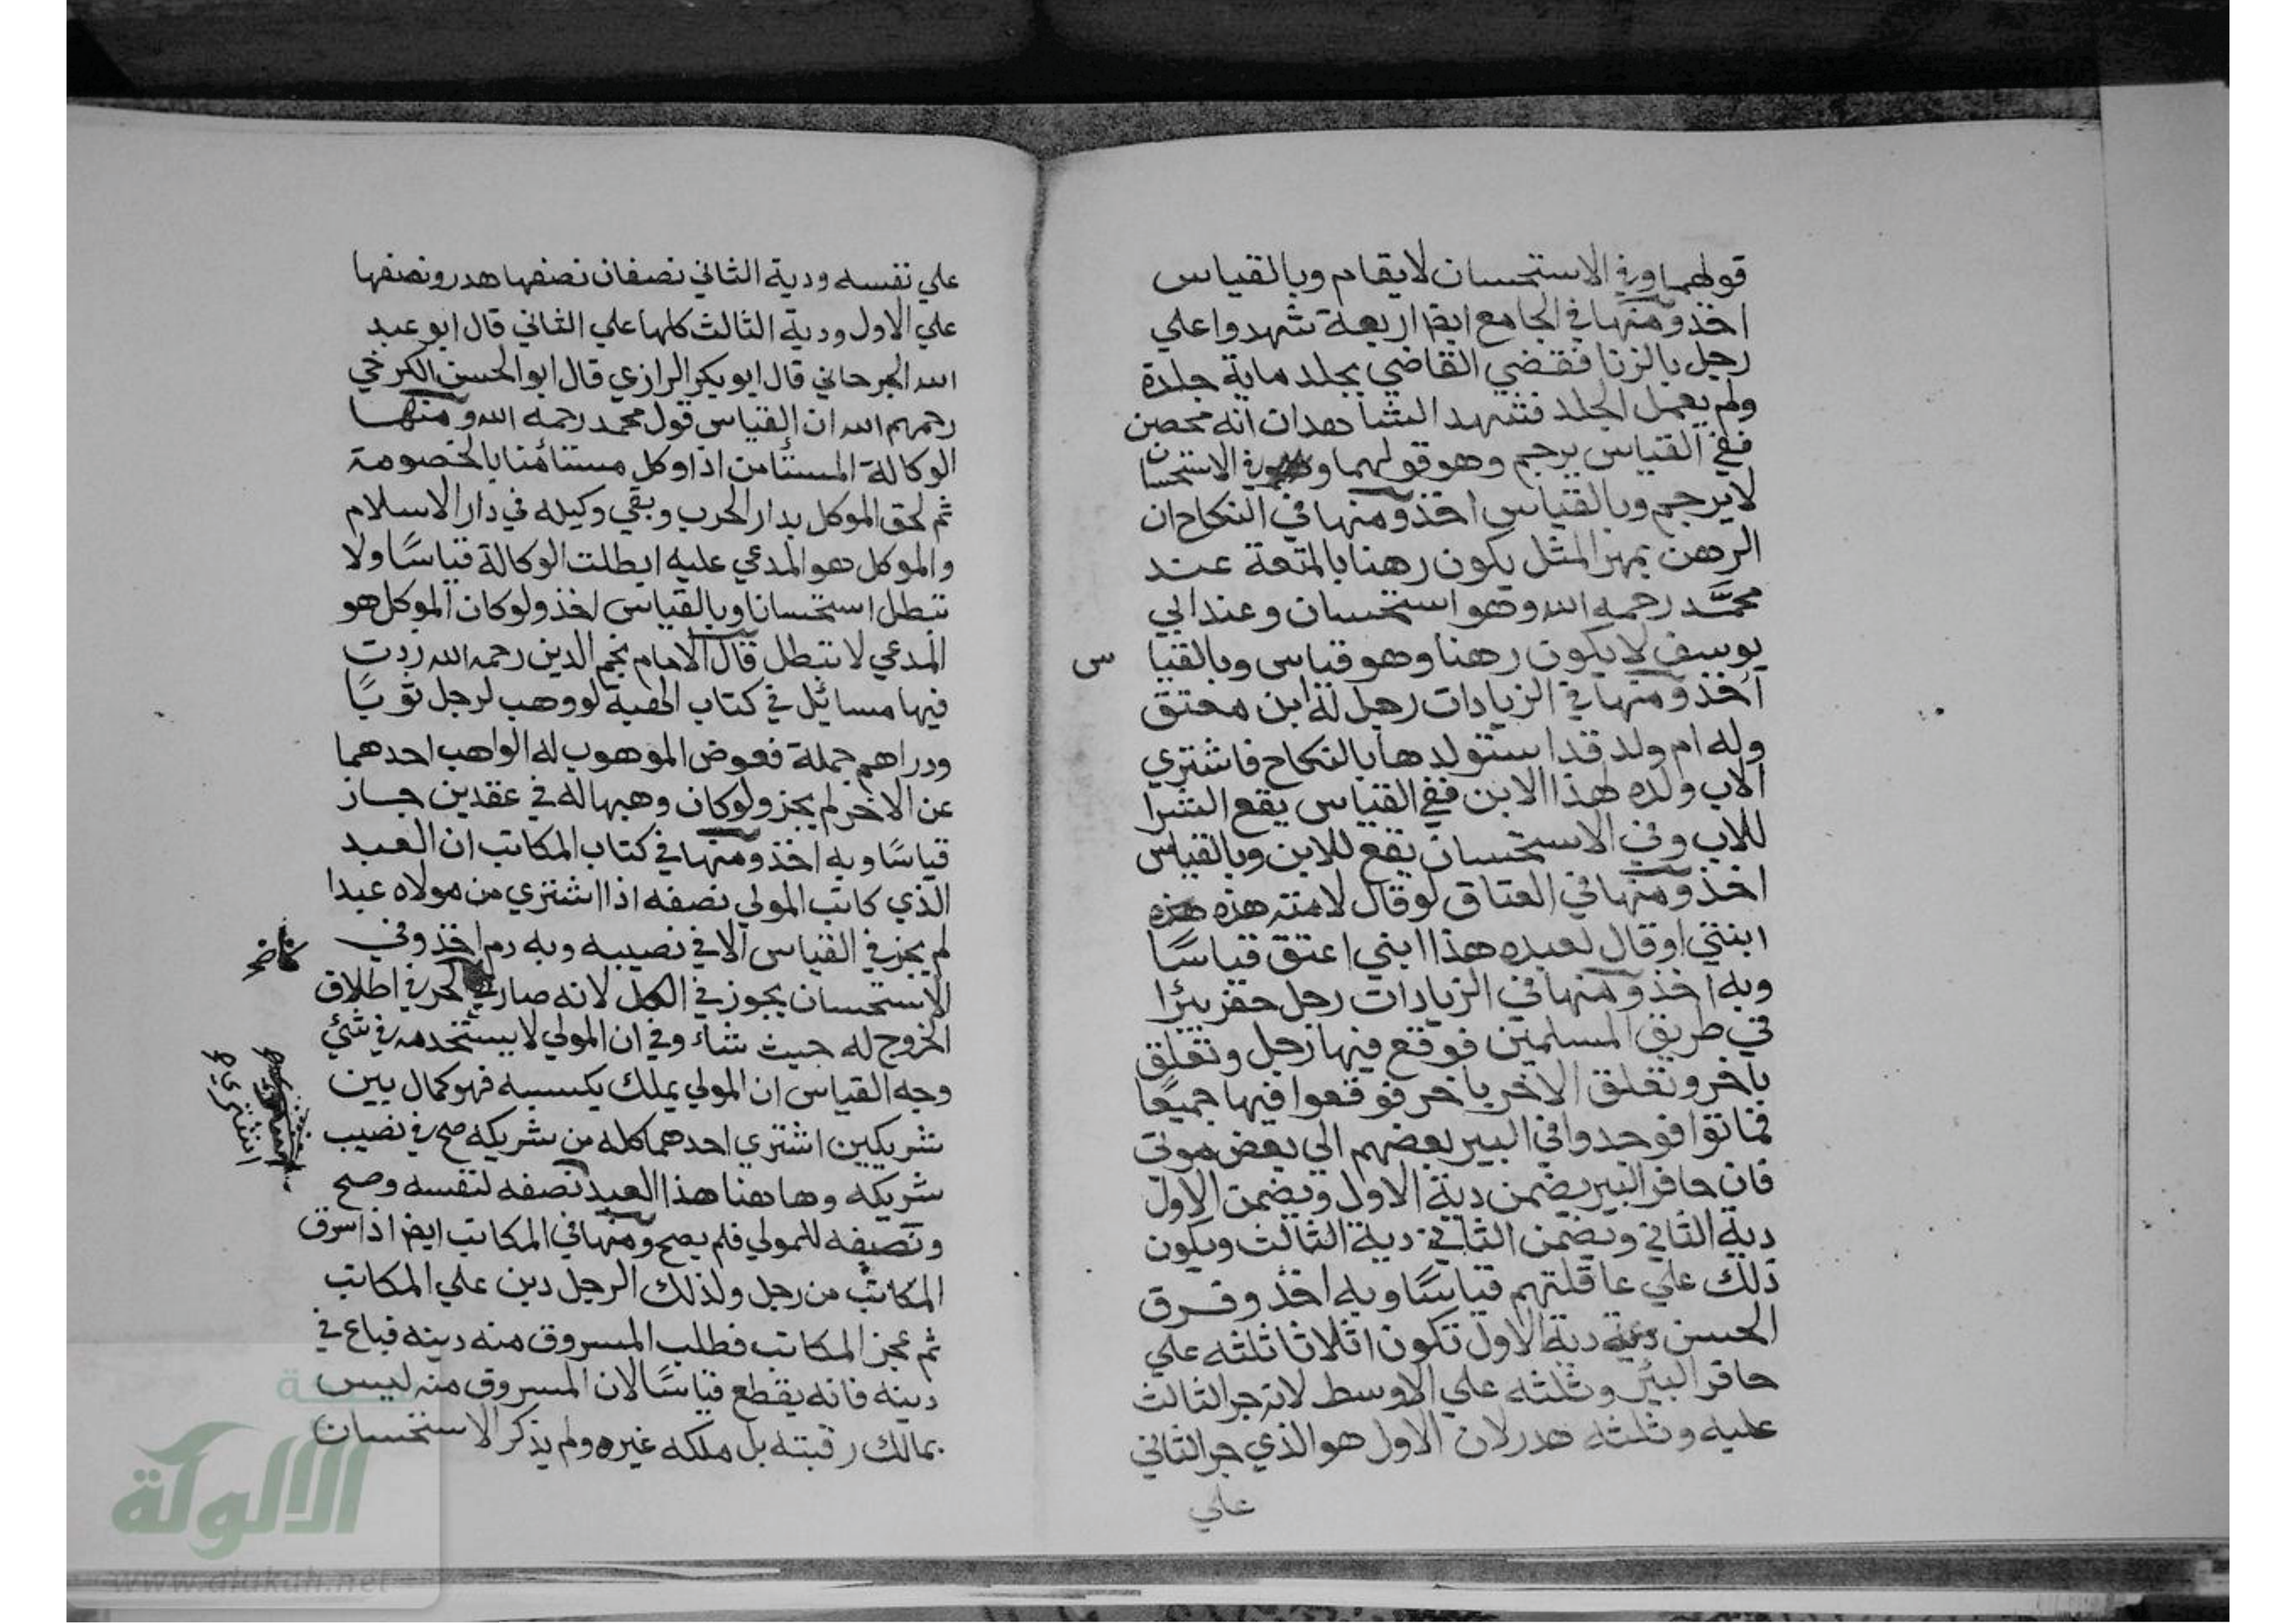 قولهما وفي الاستحسان لا يقام وبالقياس
اخذ ومنها في الجامع ايضا اربعة شهدوا علي
رجل بالزنا فقضي القاضي بجلد ماية جلدة
ولم يعمل الجلد فشهد الشاهدان انه محصن
ففي القياس يرجم وهو قولهما وفي الاستحسان
لا يرجم وبالقياس اخذ ومنها في النكاح ان
الرهن بمهر المثل يكون رهنا بالمتعة عند
محمد رحمه الله وهو استحسان وعند ابي
يوسف لا يكون رهنا وهو قياس وبالقياس
اخذ ومنها في الزيادات رجل له ابن معتق
وله ام ولد قد استولدها بالنكاح فاشتري
الاب ولده لهذا الابن ففي القياس يقع الشرا
للاب وفي الاستحسان يقع للابن وبالقياس
اخذ ومنها في العتاق لو قال لامته هذه هذه
ابنتي او قال لعبده هذا ابني اعتق قياسًا
وبه اخذ ومنها في الزيادات رجل حفر بئرا
في طريق المسلمين فوقع فيها رجل وتعلق
باخر وتعلق الاخر باخر فوقعوا فيها جميعًا
فماتوا فوجدوا في البير بعضهم الي بعض موتي
فان حافر البير يضمن دية الاول ويضمن الاول
دية الثاني ويضمن الثاني دية الثالث ويكون
ذلك علي عاقلتهم قياسًا وبه اخذ وفرق
الحسن دية الاول تكون اثلاثا ثلثه علي
حافر البئر وثلثه علي الاوسط لانه جر الثالث
عليه وثلثه هدر لان الاول هو الذي جر الثاني
علي
علي نفسه ودية الثاني نصفان نصفها هدر ونصفها
علي الاول ودية الثالث كلها علي الثاني قال ابو عبد
الله الجرجاني قال ابو بكر الرازي قال ابو الحسن الكرخي
رحمهم الله ان القياس قول محمد رحمه الله ومنها
الوكالة المستأمن اذا وكل مستأمنا بالخصومة
ثم لحق الموكل بدار الحرب وبقي وكيله في دار الاسلام
والموكل هو المدعي عليه ابطلت الوكالة قياسًا ولا
تبطل استحسانا وبالقياس اخذ ولو كان الموكل هو
المدعي لا تبطل قال الامام نجم الدين رحمه الله زدت
فيها مسائل في كتاب الهبة لو وهب لرجل ثوبًا
ودراهم جملة فعوض الموهوب له الواهب احدهما
عن الاخر لم يجز ولو كان وهبها له في عقدين جاز
قياسًا وبه اخذ ومنها في كتاب المكاتب ان العبد
الذي كاتب المولي نصفه اذا اشتري من مولاه عبدا
لم يجز في القياس الا في نصيبه وبه اخذ وفي
الاستحسان يجوز في الكل لانه صار كالحر في اطلاق
الخروج له حيث شاء وفي ان المولي لا يستخدمه في شئ
وجه القياس ان المولي يملك يكسبه فهو كمال بين
شريكين اشتري احدهما كله من شريكه صح في نصيب
شريكه وهاهنا هذا العبد نصفه لنفسه وصح
ونصفه للمولي فلم يصح ومنها في المكاتب ايضا اذا سرق
المكاتب من رجل ولذلك الرجل دين علي المكاتب
ثم عجز المكاتب فطلب المسروق منه دينه فباع في
دينه فانه يقطع قياسًا لان المسروق منه ليس
بمالك رقبته بل ملكه غيره ولم يذكر الاستحسان
الالولة
www.alukah.net